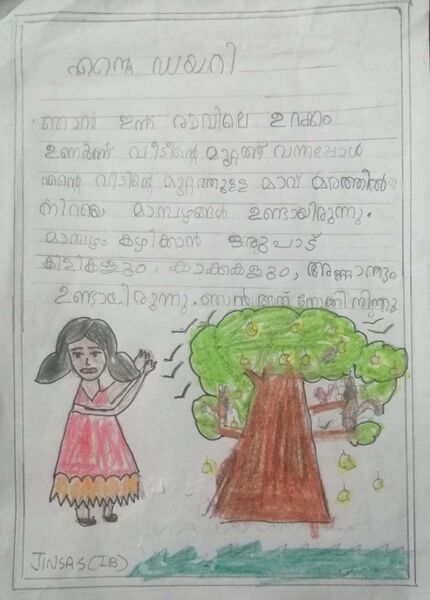 എന്റെ ഡയറി
ഞാൻ ഇന്ന് രാവിലെ ഉറക്കം
ഉണർന്ന് വീടിന്റെ മുറ്റത്ത് വന്നപ്പോൾ
എന്റെ വീടിന്റെ മുറ്റത്തുള്ള മാവ് മരത്തിൽ
നിറയെ മാമ്പഴങ്ങൾ ഉണ്ടായിരുന്നു.
മാമ്പഴം കഴിക്കാൻ ഒരുപാട്
കിളികളും, കാക്കകളും, അണ്ണാനും
ഉണ്ടായിരുന്നു. ഞാൻ അത് നോക്കി നിന്നു
JINSA S (IB)